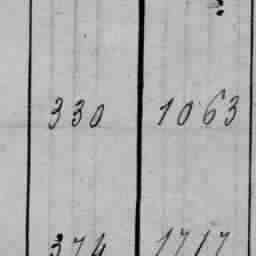 330 1063
374 1717